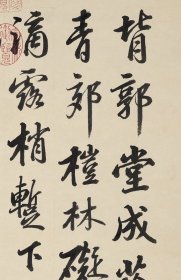 背郭堂成蔭
青郊榿林礙
滴露梢暫下